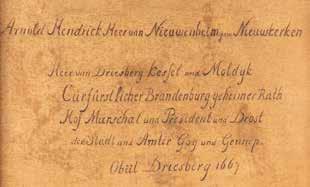 Arnold Hendrick Heer van Nieuwenheim gen Nieuwkerken
Heer van Driesberg Kessel und Moldyk
Curfürstlicher Brandenburg geheimer Rath
Hof Marschal und President und Drost
der Stadt und Amter Gog und Gennep.
Obiit Driesberg 1667